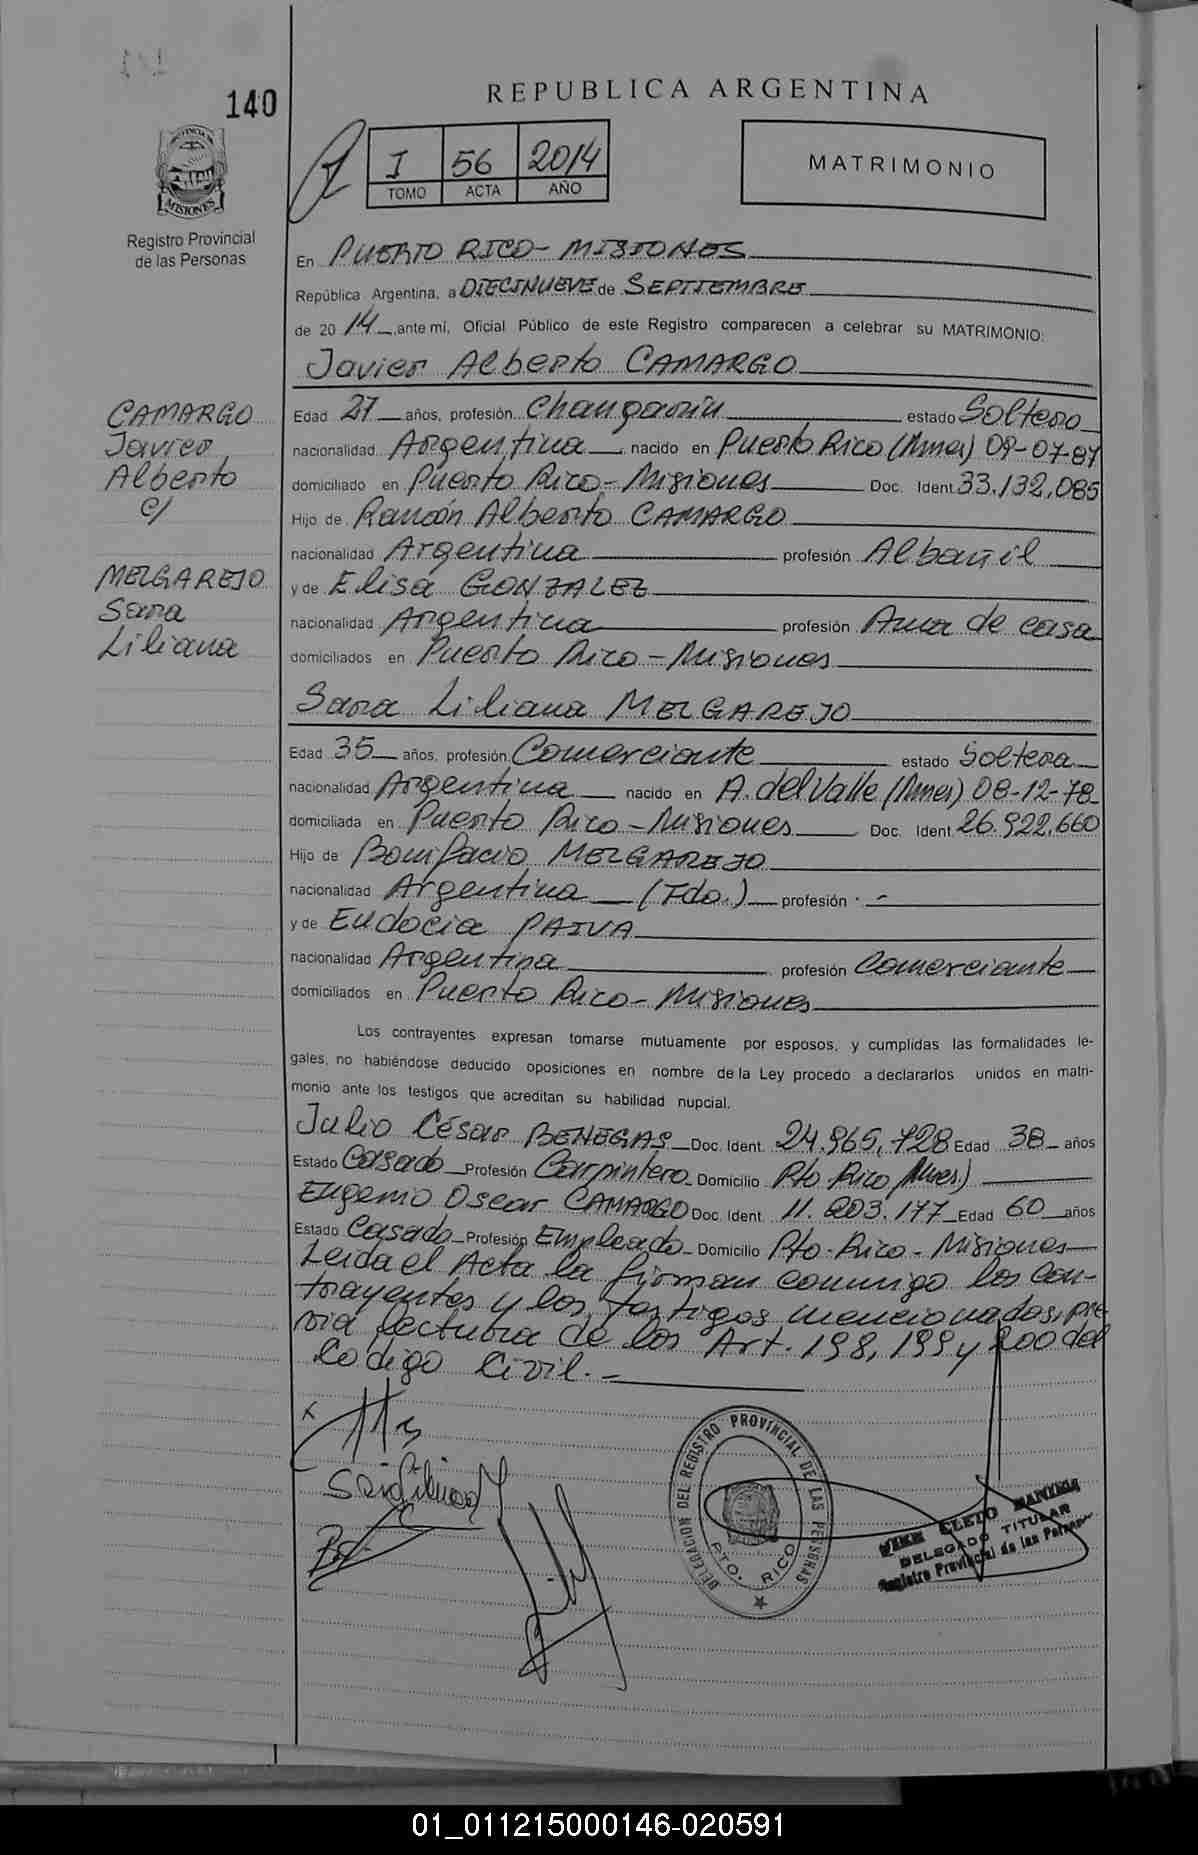 140
REPUBLICA ARGENTINA
I 56 2014
TOMO ACTA AÑO
MATRIMONIO
PROVINCIA DE
MISIONES
Registro Provincial
de las Personas
En PUERTO RICO - MISIONES
República Argentina, a DIECINUEVE de SEPTIEMBRE
de 20 14 ,ante mí, Oficial Público de este Registro comparecen a celebrar su MATRIMONIO:
Javier Alberto CAMARGO
CAMARGO
Javier
Alberto
c/
MELGAREJO
Sara
Liliana
Edad 27 años, profesión Changarín estado Soltero
nacionalidad Argentina nacido en Puerto Rico (Mnes) 09-07-87
domiciliado en Puerto Rico - Misiones Doc. Ident 33.132.085
Hijo de Ramón Alberto CAMARGO
nacionalidad Argentina profesión Albañil
y de Elisa GONZALEZ
nacionalidad Argentina profesión Ama de casa
domiciliados en Puerto Rico - Misiones
Sara Liliana MELGAREJO
Edad 35 años, profesión Comerciante estado Soltera
nacionalidad Argentina nacido en A. del Valle (Mnes) 08-12-78
domiciliada en Puerto Rico - Misiones Doc. Ident 26.922.660
Hijo de Bonifacio MELGAREJO
nacionalidad Argentina (Fdo.) profesión -
y de Eudocia PAIVA
nacionalidad Argentina profesión Comerciante
domiciliados en Puerto Rico - Misiones
Los contrayentes expresan tomarse mutuamente por esposos, y cumplidas las formalidades le-
gales, no habiéndose deducido oposiciones en nombre de la Ley procedo a declararlos unidos en matri-
monio ante los testigos que acreditan su habilidad nupcial.
Julio César BENEGAS Doc. Ident. 24.965.728 Edad 38 años
Estado Casado Profesión Carpintero Domicilio Pto Rico (Mnes)
Eugenio Oscar CAMARGO Doc. Ident. 11.203.177 Edad 60 años
Estado Casado Profesión Empleado Domicilio Pto. Rico - Misiones
Leida el Acta la firman conmigo los con-
trayentes y los testigos mencionados, pre
via lectura de los Art. 198, 199 y 200 del
Codigo Civil. -
DELEGACION DEL REGISTRO PROVINCIAL DE LAS PERSONAS
PTO. RICO
CLETO
DELEGADO TITULAR
Registro Provincial de las Personas
01_011215000146-020591